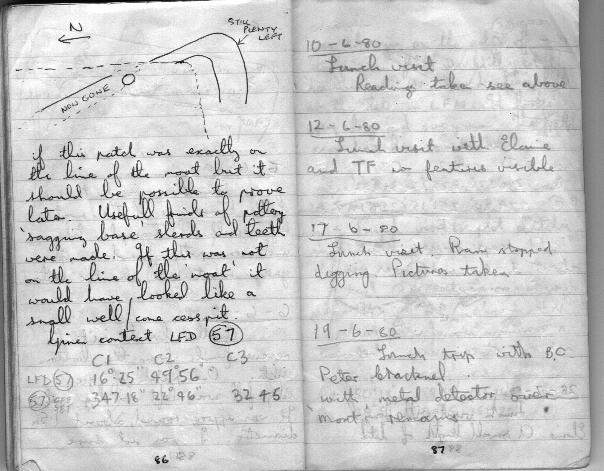 N
STILL
PLENTY
LEFT
NOW GONE
if this patch was exactly on
the line of the moat but it
should be possible to prove
later. Usefull finds of pottery
'sagging base' sherds and teeth
were made. If this was not
on the line of the 'moat' it
would have looked like a
small well/cone cesspit.
Given context LFD 57
C1 C2 C3
LFD 57 16°25" 49°56"
57 347-18" 22°46" 32 45
86
10-6-80
Lunch visit
Reading taken see above
12-6-80
Lunch visit with Elaine
and TF no features visible
17-6-80
Lunch visit. Rain stopped
digging Pictures taken
19-6-80
Lunch trip with B.C.
Peter
with metal detector over
'moat' remains
87